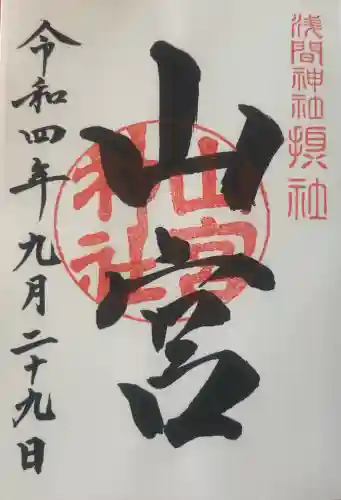 浅間神社摂社
山宮
山宮
神社
令和四年九月二十九日